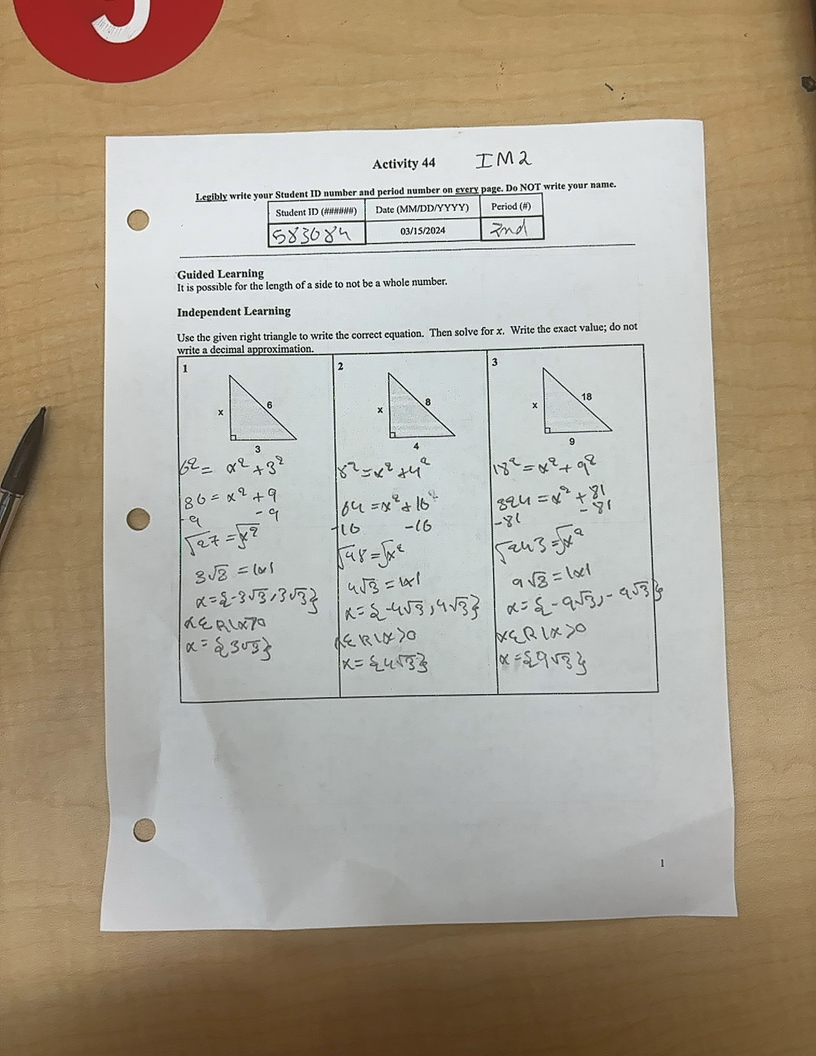 Activity 44 IM2
Legibly write your Student ID number and period number on every page. Do NOT write your name.
Student ID (######) Date (MM/DD/YYYY) Period (#)
583084 03/15/2024 2nd
Guided Learning
It is possible for the length of a side to not be a whole number.
Independent Learning
Use the given right triangle to write the correct equation. Then solve for x. Write the exact value; do not
write a decimal approximation.
1
x
6
3
6² = x² + 3²
36 = x² + 9
-9 -9
√27 = √x²
3√3 = |x|
x = {-3√3, 3√3}
x∈R|x>0
x = {3√3}
2
x
8
4
8² = x² + 4²
64 = x² + 16²
-16 -16
√48 = √x²
4√3 = |x|
x = {-4√3, 4√3}
x∈R|x>0
x = {4√3}
3
x
18
9
18² = x² + 9²
324 = x² + 81
-81 -81
√243 = √x²
9√3 = |x|
x = {-9√3, -9√3}
x∈R|x>0
x = {9√3}
1